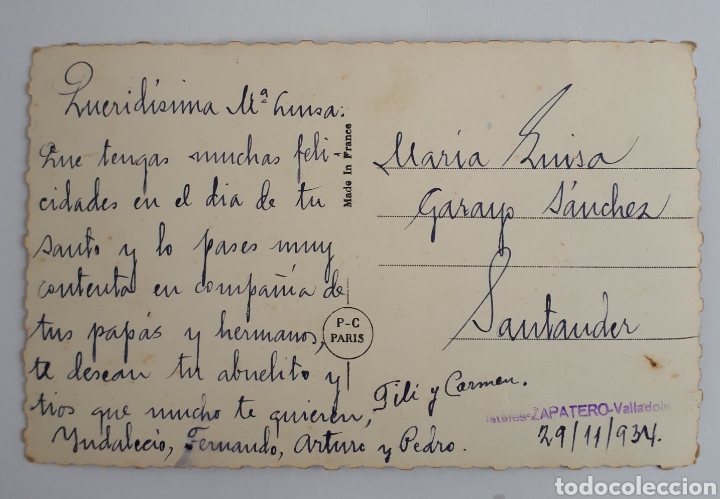 Queridísima Mª Luisa:
Que tengas muchas feli-
cidades en el dia de tu
santo y lo pases muy
contenta en compañía de
tus papás y hermanos,
te desean tu abuelito y
tios que mucho te quieren,
Yndalecio, Fernando, Arturo y Pedro.
Fili y Carmen.
Made In France
P-C
PARIS
Maria Luisa
Garayo Sánchez
Santander
ZAPATERO-Valladolid
29/11/934.
todocoleccion